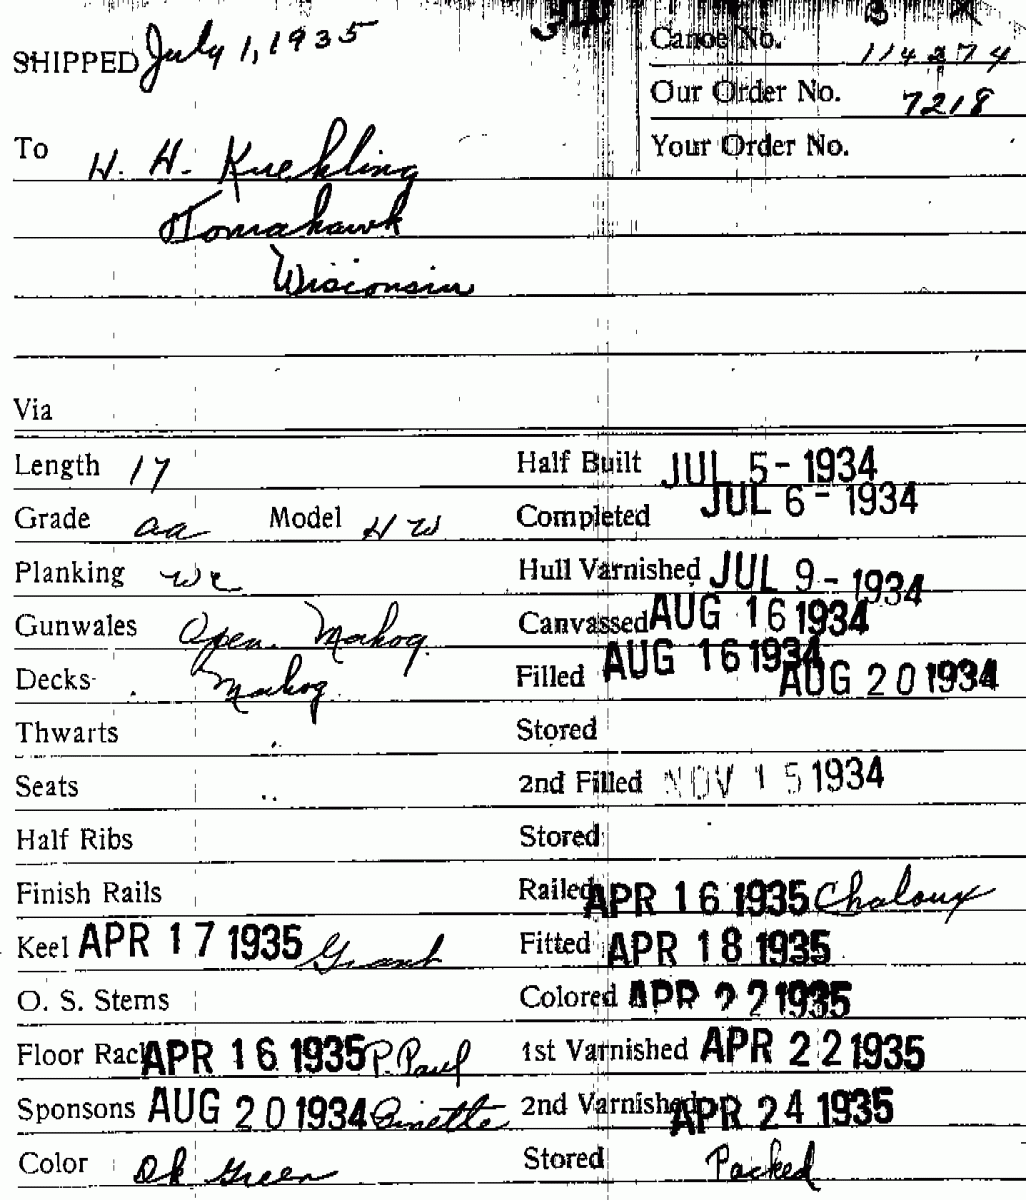 SHIPPED July 1, 1935
Canoe No. 114274
Our Order No. 7218
Your Order No.
To H. H. Kuehling
Tomahawk
Wisconsin
Via
Length 17
Half Built JUL 5-1934
Grade aa Model HW
Completed JUL 6-1934
Planking wc
Hull Varnished JUL 9-1934
Gunwales Open. Mahog.
Canvassed AUG 16 1934
Decks Mahog.
Filled AUG 16 1934 AUG 20 1934
Thwarts
Stored
Seats
2nd Filled NOV 15 1934
Half Ribs
Stored
Finish Rails
Railed APR 16 1935 Chaloux
Keel APR 17 1935 Grant
Fitted APR 18 1935
O. S. Stems
Colored APR 22 1935
Floor Rack APR 16 1935 P. Paul
1st Varnished APR 22 1935
Sponsons AUG 20 1934 Ginette
2nd Varnished APR 24 1935
Color Dk Green
Stored Packed